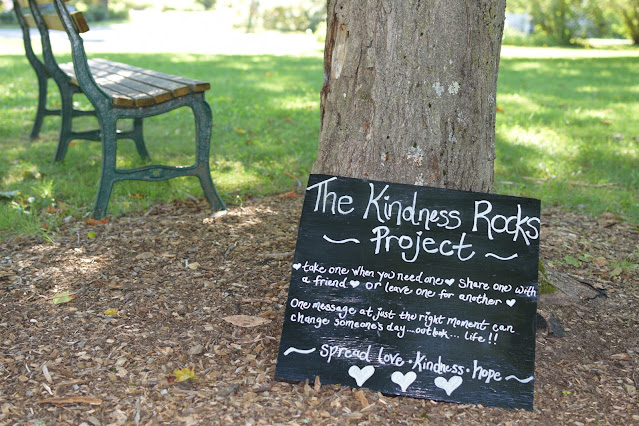 The Kindness Rocks
~ Project ~
♥ take one when you need one ♥ share one with
a friend ♥ or leave one for another ♥
One message at just the right moment can
change someone's day...outlook... life!!
~ spread love • Kindness • Hope ~